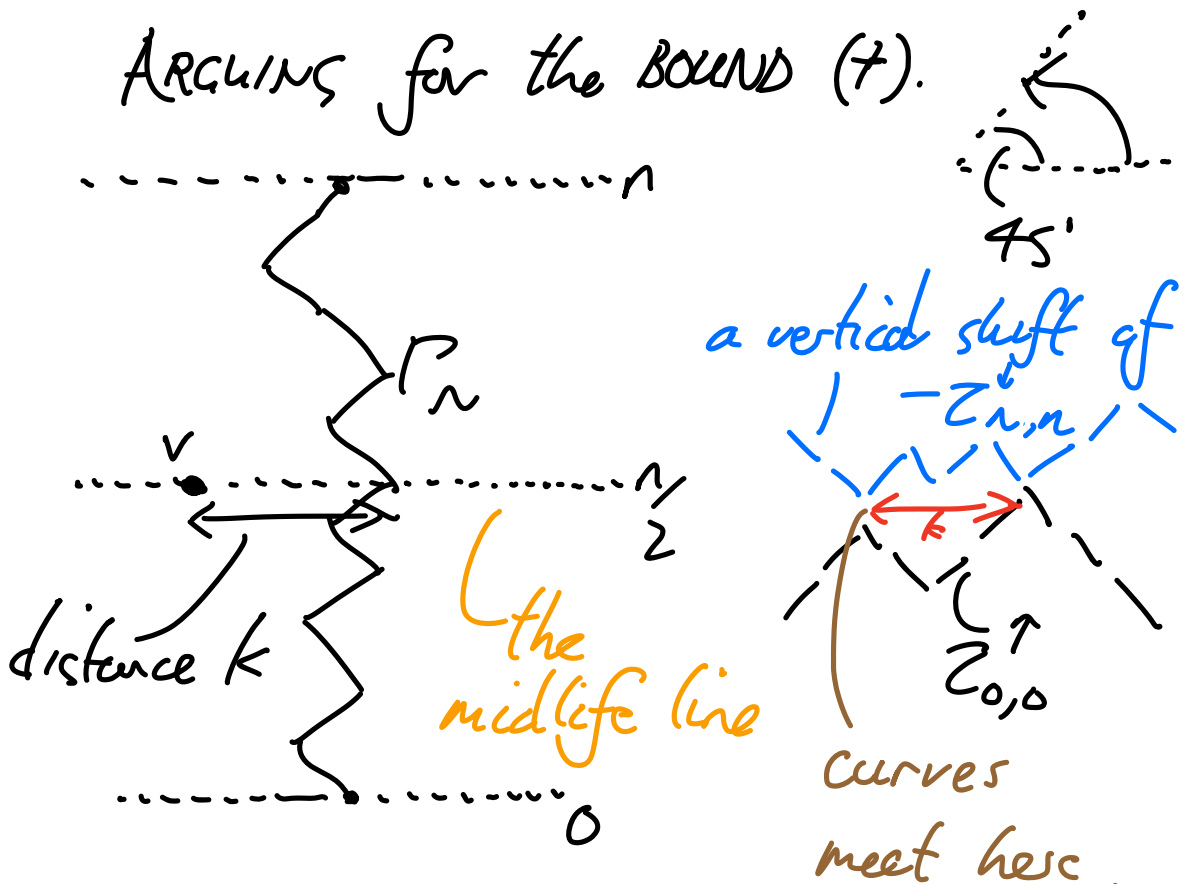 ARGUING for the BOUND (†).
n
45°
a vertical shift of
- Z↓n,n
Γn
v
n/2
k
distance k
the
midlife line
Z↑0,0
0
curves
meet here